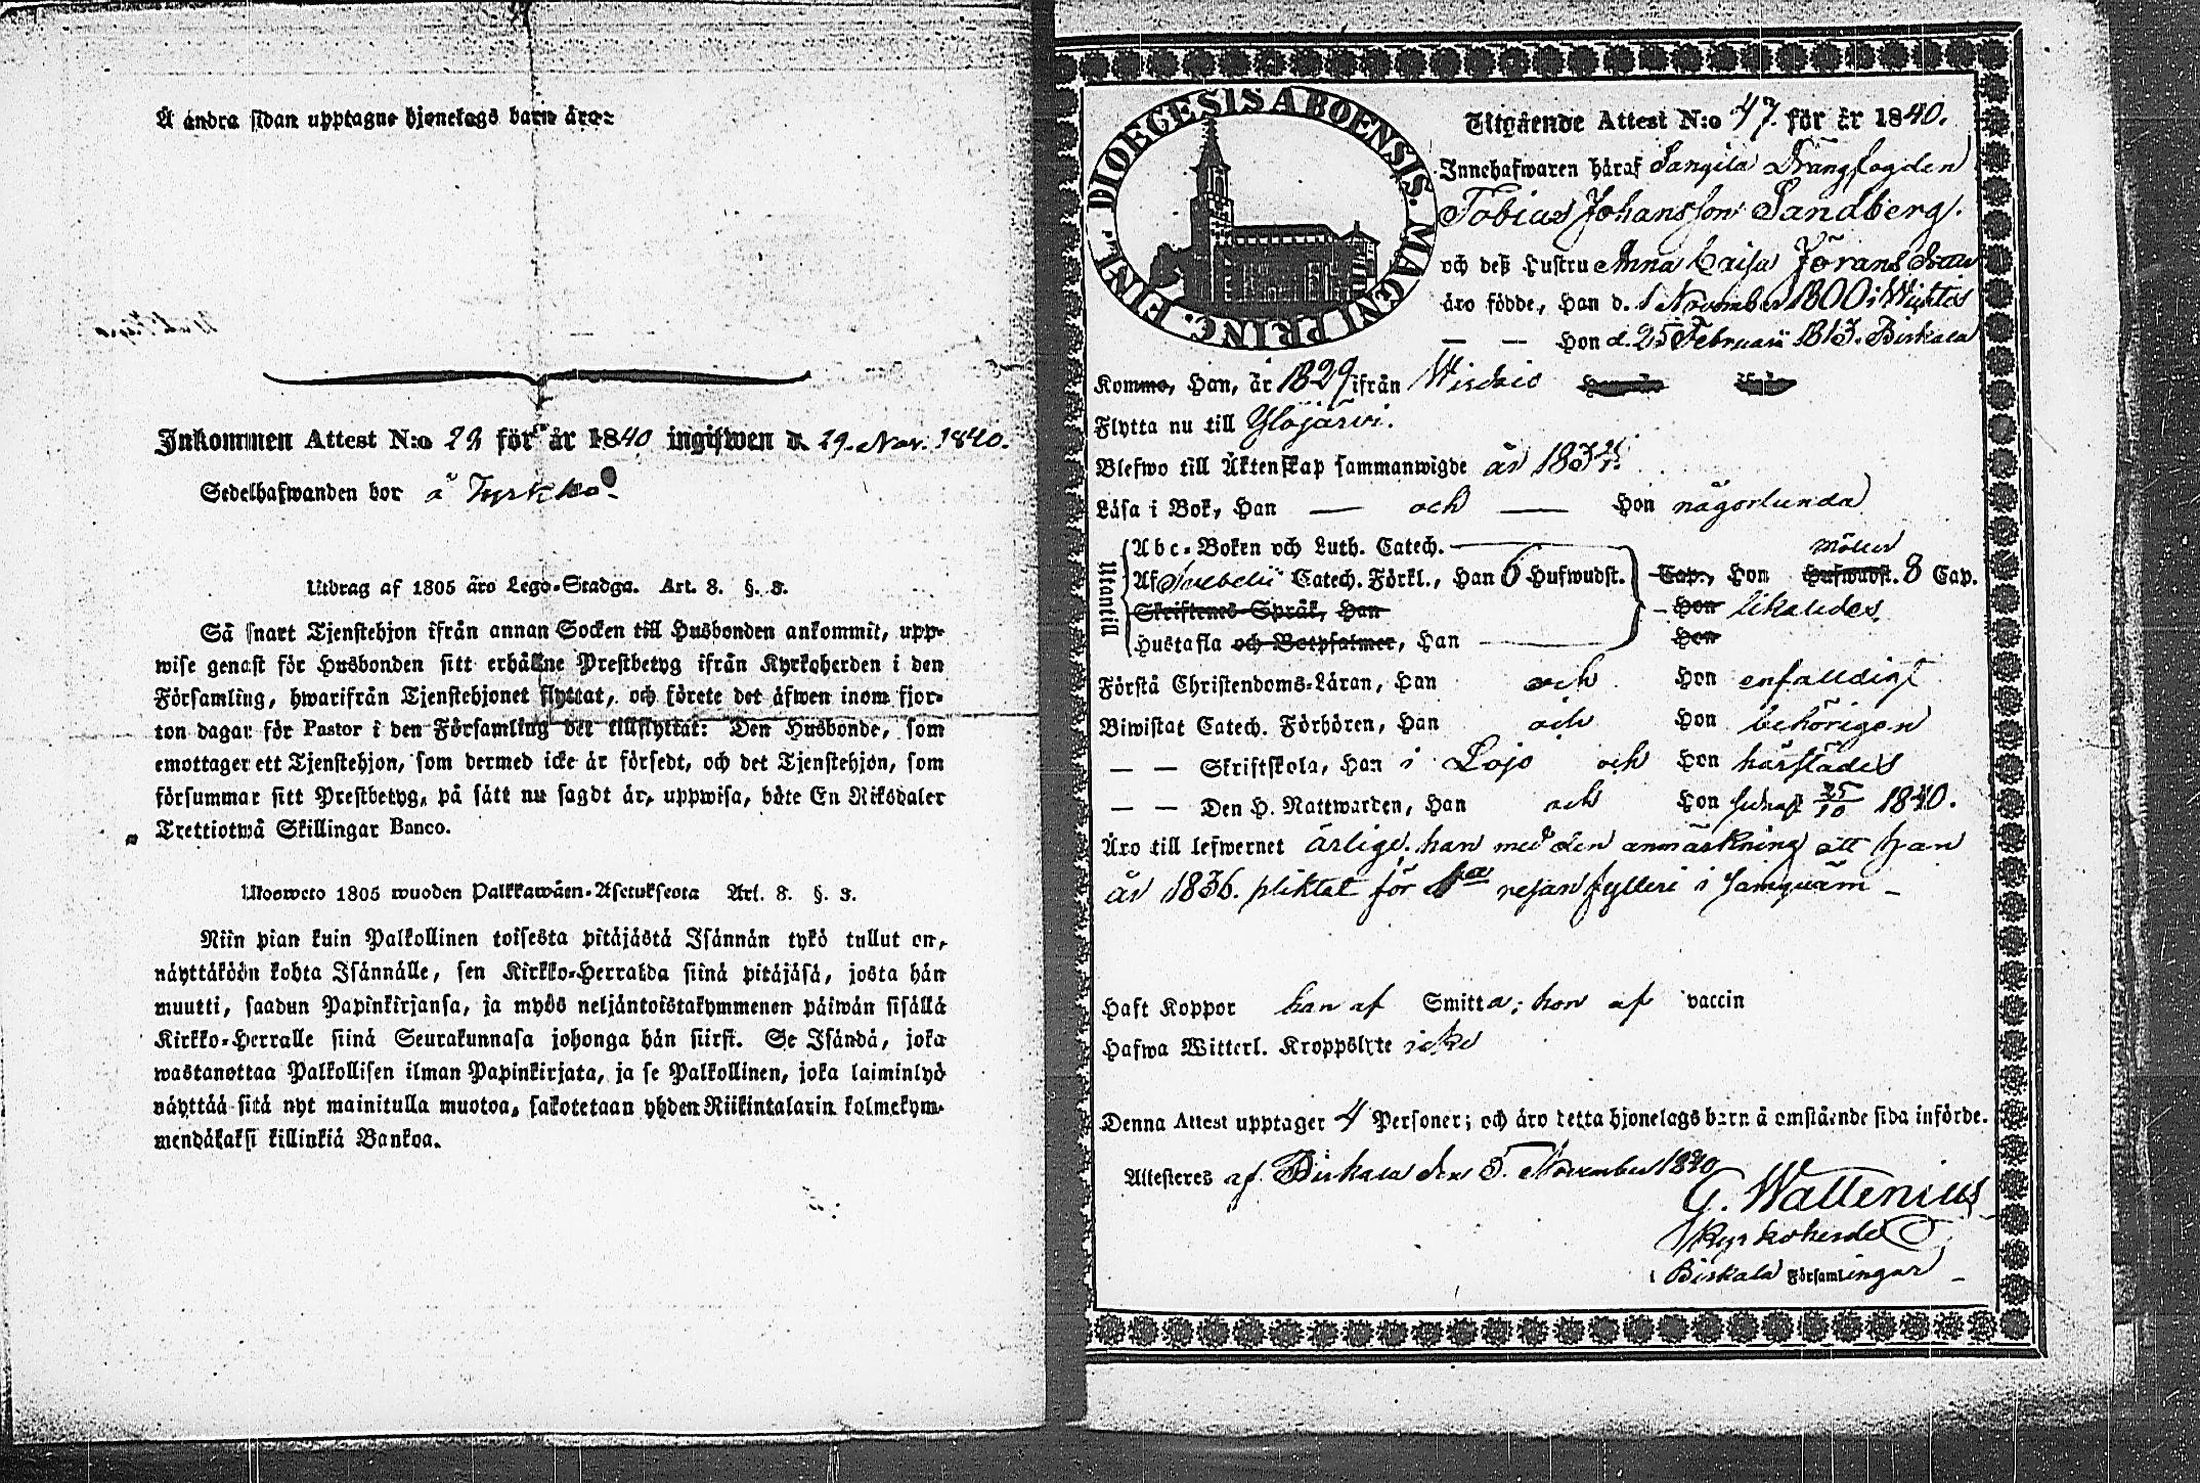 Å andra sidan upptagne hjonelags barn äro:
Inkommen Attest N:o 29 för år 1840 ingifwen d. 29. Nov. 1840.
Sedelhafwanden bor å Kyrkko
Utdrag af 1805 års Lego-Stadga. Art. 8. §. 3.
Så snart Tjenstehjon ifrån annan Socken till Husbonden ankommit, upp-
wise genast för Husbonden sitt erhållne Prestbetyg ifrån Kyrkoherden i den
Församling, hwarifrån Tjenstehjonet flyttat, och förete det äfwen inom fjor-
ton dagar för Pastor i den Församling det tillflyttat: Den Husbonde, som
emottager ett Tjenstehjon, som dermed icke är försedt, och det Tjenstehjon, som
försummar sitt Prestbetyg, på sätt nu sagdt är, uppwisa, böte En Riksdaler
Trettiotwå Skillingar Banco.
Ulosweto 1805 wuoden Palkkawäen-Asetuksesta Art. 8. §. 3.
Niin pian kuin Palkollinen toisesta pitäjästä Isännän tykö tullut on,
näyttäköön kohta Isännälle, sen Kirkko-Herralda siinä pitäjäsä, josta hän
muutti, saadun Papinkirjansa, ja myös neljäntoistakymmenen päiwän sisällä
Kirkko-Herralle siinä Seurakunnasa johonga hän siirsi. Se Isändä, joka
wastanottaa Palkollisen ilman Papinkirjata, ja se Palkollinen, joka laiminlyö
näyttää sitä nyt mainitulla muotoa, sakotetaan yhden Riikintalarin kolmekym-
mendäkaksi killinkiä Bankoa.
DIOECESIS ABOENSIS. MAGNI PRINC. FINL.
Utgående Attest N:o 47. för år 1840.
Innehafwaren häraf Sangila Drängfogden
Tobias Johansson Sandberg.
och deß Hustru Anna Caisa Jörans
äro födde, Han d. 1 November 1800 i Wichtis
— — Hon d. 25 Februarii 1813. Birkala
Komme, Han, år 1829 ifrån
Flytta nu till Ylöjärwi.
Blefwo till Äktenskap sammanwigde år 183
Läsa i Bok, Han — och — Hon någorlunda
Utantill
Abc-Boken och Luth. Catech.
Möller
Af Swebelii Catech. Förkl., Han 6 Hufwudst. Cap., Hon Hufwudst. 8 Cap.
Skriftenes Språk, Han — Hon likaledes.
Hustafla och Botpsalmer, Han Hon
Förstå Christendoms-Läran, Han och Hon enfaldigt
Biwistat Catech. Förhören, Han och Hon behörigen
— — Skriftskola, Han i Lojo och Hon härstädes
— — Den H. Nattwarden, Han och Hon sednast 25/10 1840.
Äro till lefwernet ärlige. han med den anmärkning att han
år 1836. pliktat för 1a resan fylleri i
Haft Koppor han af Smitta; hon af vaccin
Hafwa Witterl. Kroppslyte icke
Denna Attest upptager 4 Personer; och äro detta hjonelags barn å omstående sida införde.
Attesteres af Birkala den 5. November 1840
G. Wallenius
Kyrkoherde
i Birkala Församlingar